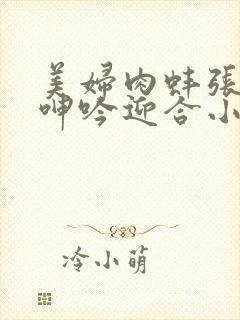 美婦肉蚌張
呻吟迎合小
冷小萌